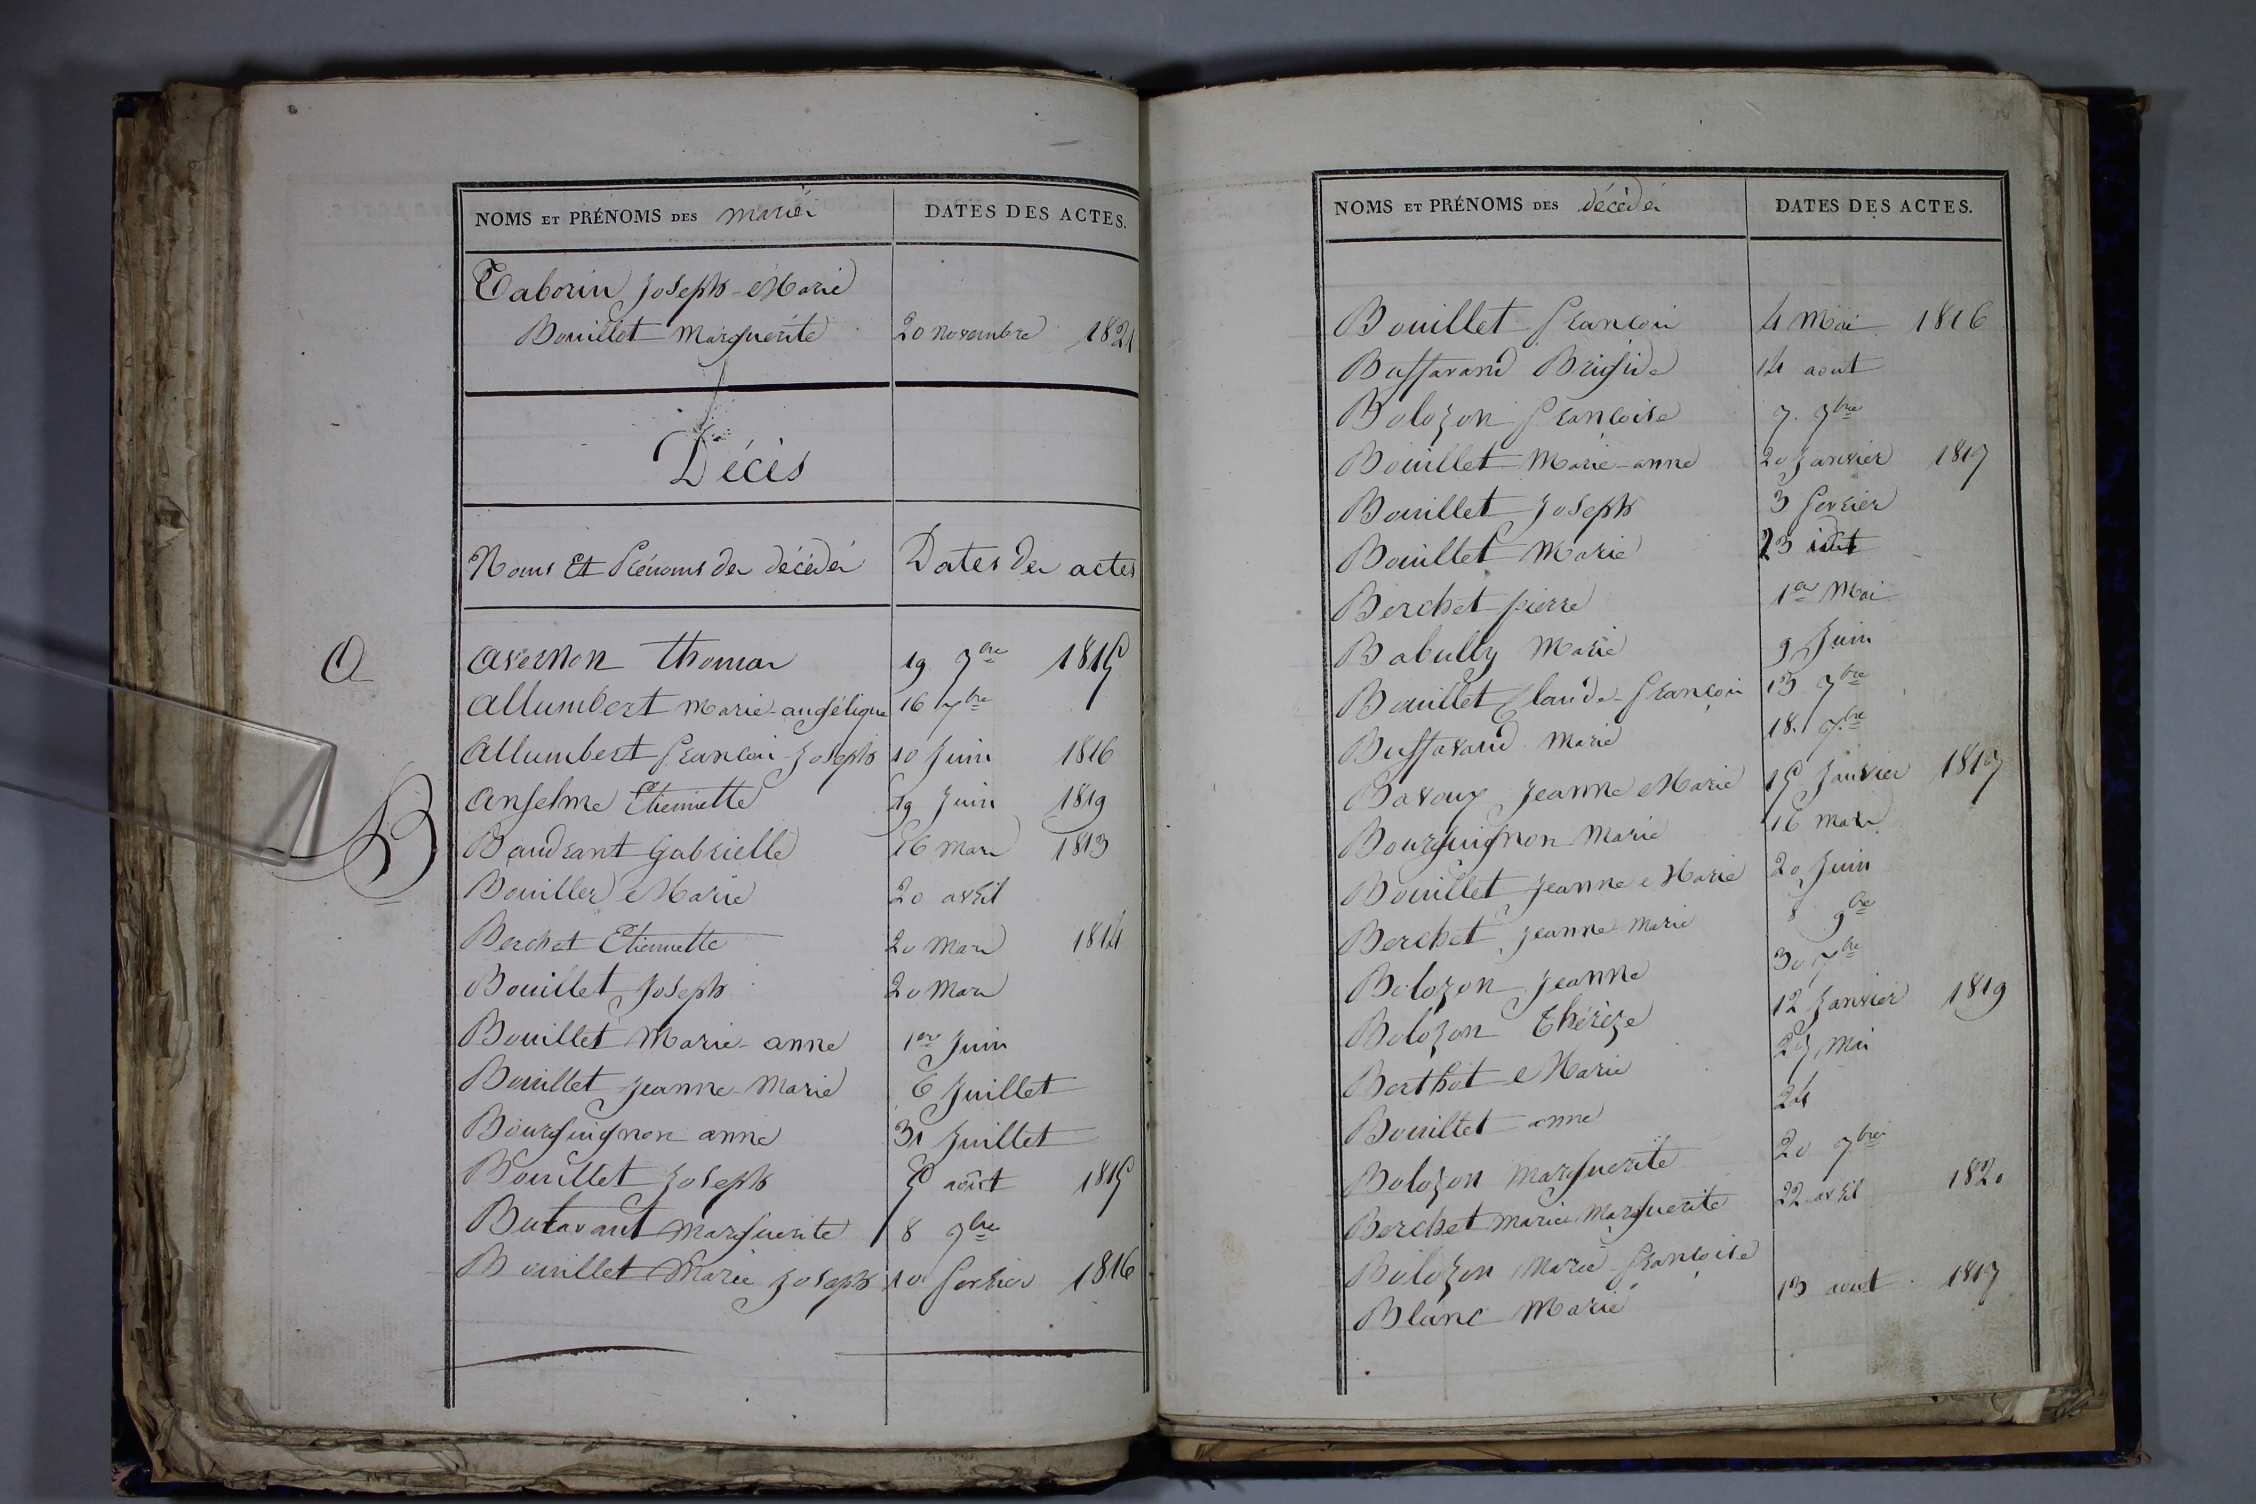 NOMS ET PRÉNOMS DES mariés DATES DES ACTES.
Taborin Joseph-Marie
Bouillet Marguerite 20 novembre 1821
Décès
Noms Et Prénoms des décédés Dates des actes
A
avernon thomas 19 9bre 1815
allumbert marie-angélique 16 7bre
allumbert françois-joseph 10 Juin 1816
anselme Etiennette 19 Juin 1819
B
Baudrant Gabrielle 16 mars 1813
Bouiller Marie 20 avril
Berchet Etiennette 20 mars 1814
Bouillet Joseph 20 mars
Bouillet Marie-anne 1er Juin
Bouillet Jeanne-Marie 6 Juillet
Bourguignon anne 31 Juillet
Bouillet Joseph 5 août 1815
Butavant Marguerite 8 9bre
Bouillet Marie Joseph 10 fevrier 1816
NOMS ET PRÉNOMS DES décédés DATES DES ACTES.
Bouillet françois 4 Mai 1816
Buffavand Brigide 14 aout
Bolozon françoise 7. 9bre
Bouillet Marie-anne 20 Janvier 1817
Bouillet Joseph 3 fevrier
Bouillet Marie 23
Berchet pierre 1er Mai
Babully Marie 9 Juin
Bouillet Claude-françois 13 7bre
Buffavand Marie 18. 9bre
Bavoux Jeanne Marie 15 Janvier 1817
Bourguignon Marie 16 mars
Bouillet Jeanne Marie 20 Juin
Berchet Jeanne Marie 8 9bre
Bolozon Jeanne 30 7bre
Bolozon thérèze 12 Janvier 1819
Berthot Marie 27 Mai
Bouillet anne 24
Bolozon Marguerite 20 9bre
Berchet Marie Marguerite 22 avril 1820
Bolozon Marie-françoise
Blanc Marie 13 aout 1817